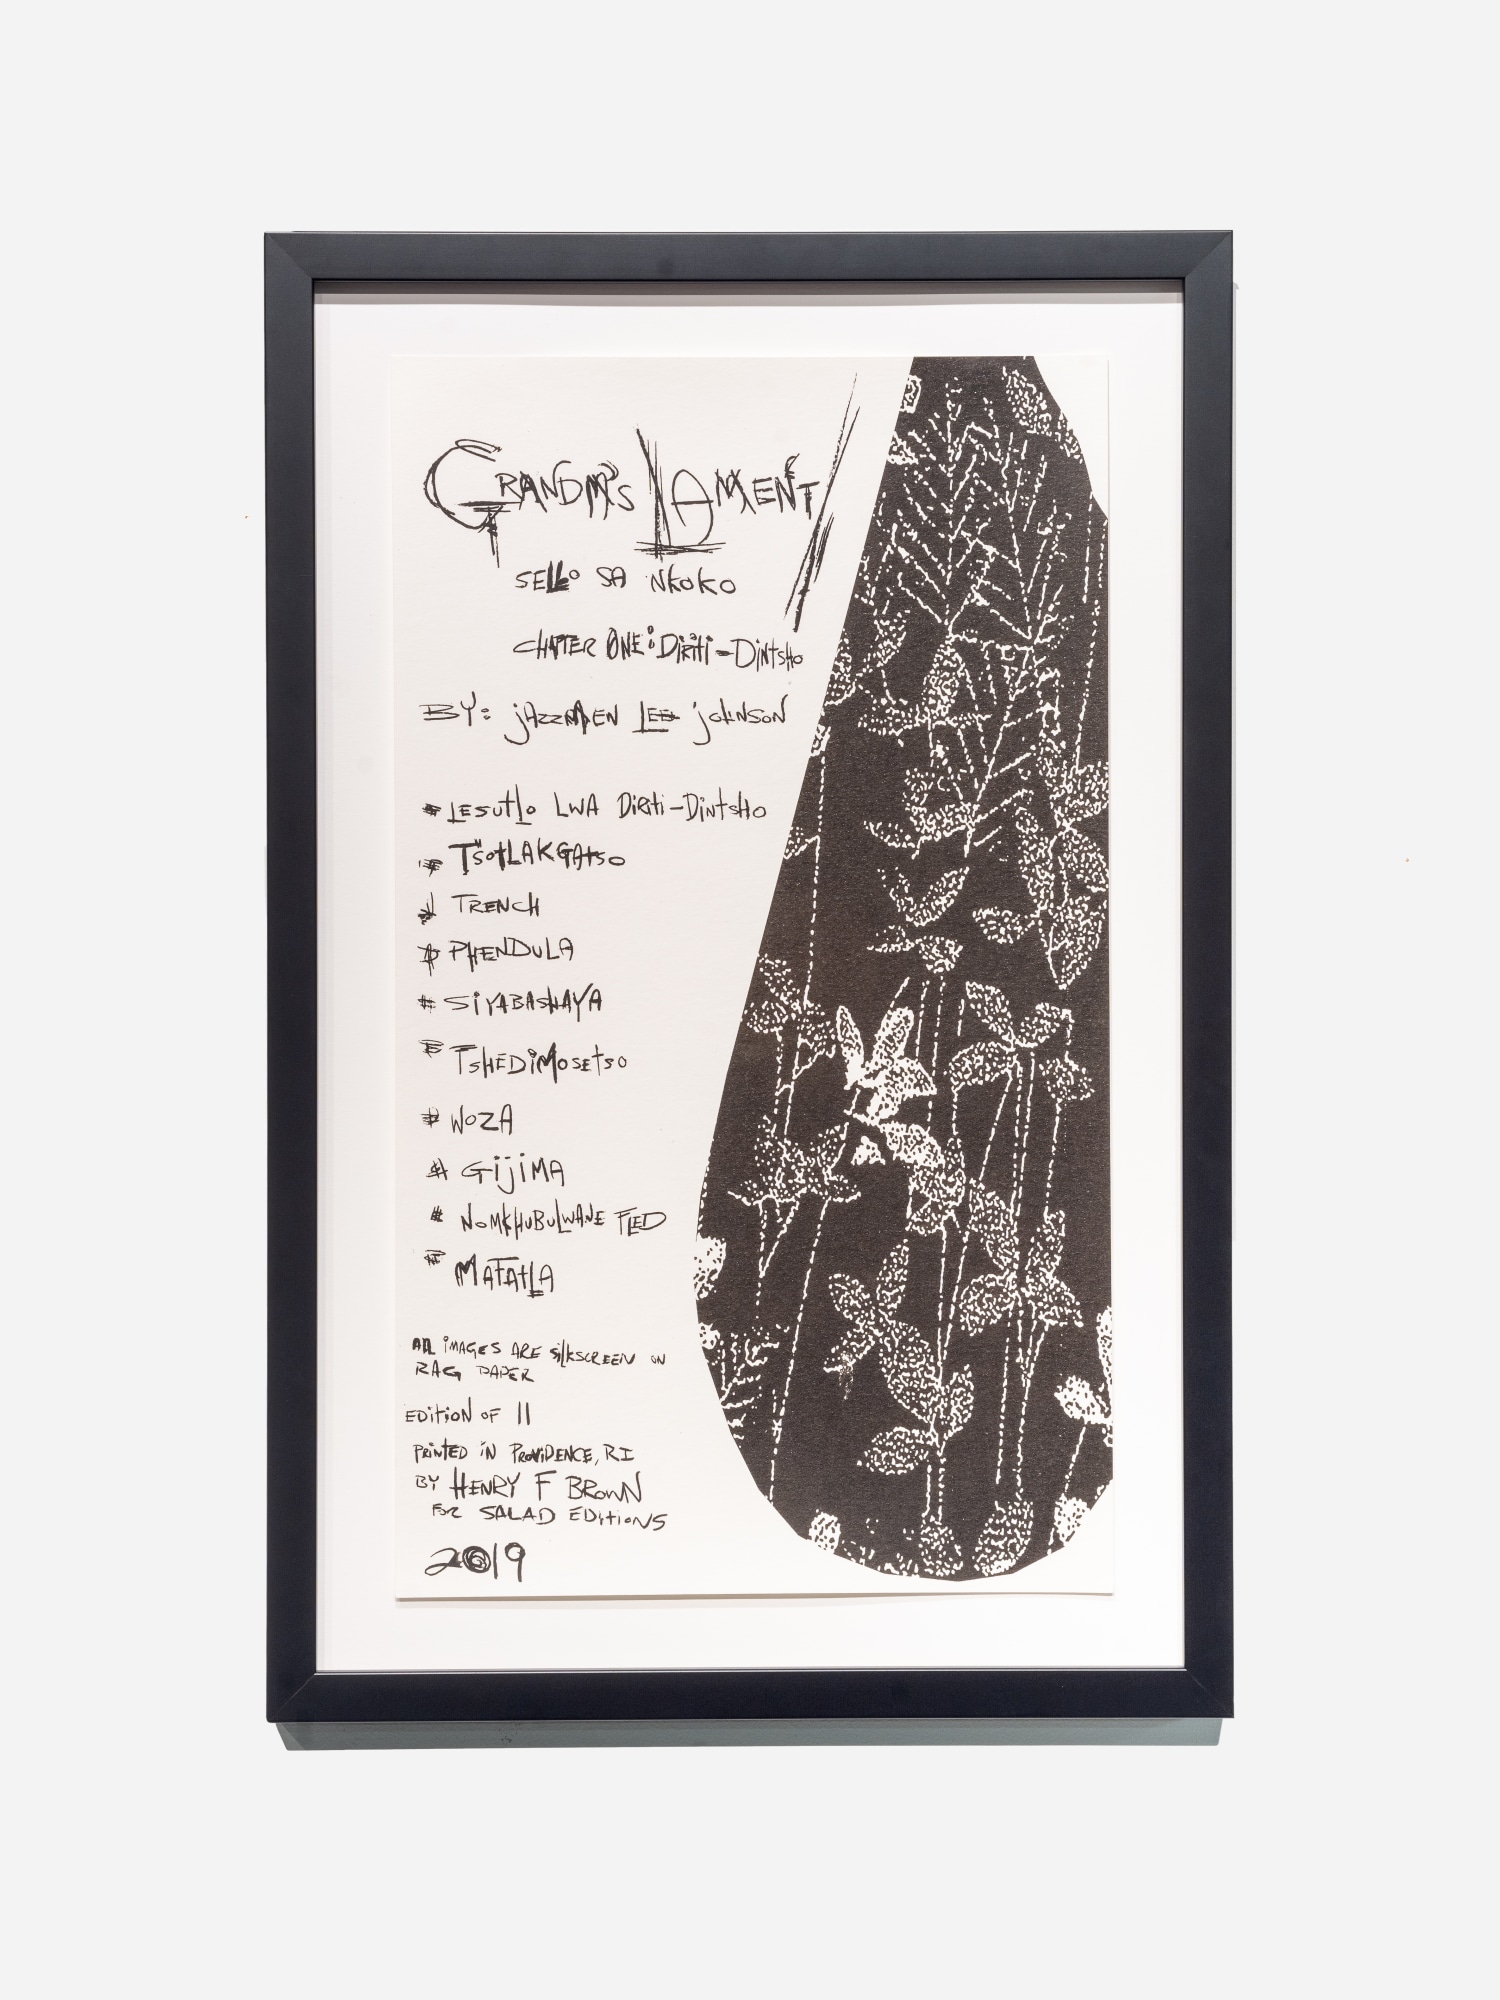 GRANDM'S LAMENT
SELLO SA NKOKO
CHAPTER ONE: DiRiti-DiNtsHo
BY: jAZZMEN LEE joHNSON
# LESUtLo LWA DiRiti-DiNtsHO
# TSOtLAKGAtSO
# TRENCH
# PHENDULA
# SiYABASHAYA
# TSHEDiMOSEtSO
# WOZA
# GijiMA
# NOMKHUBULWANE FLED
# MAFAtLA
All iMAGES ARE SiLKSCREEN ON
RAG PAPER
EDitiON OF 11
PRiNTED iN PROViDENCE, RI
BY HENRY F BROWN
FOR SALAD EDitiONS
2019